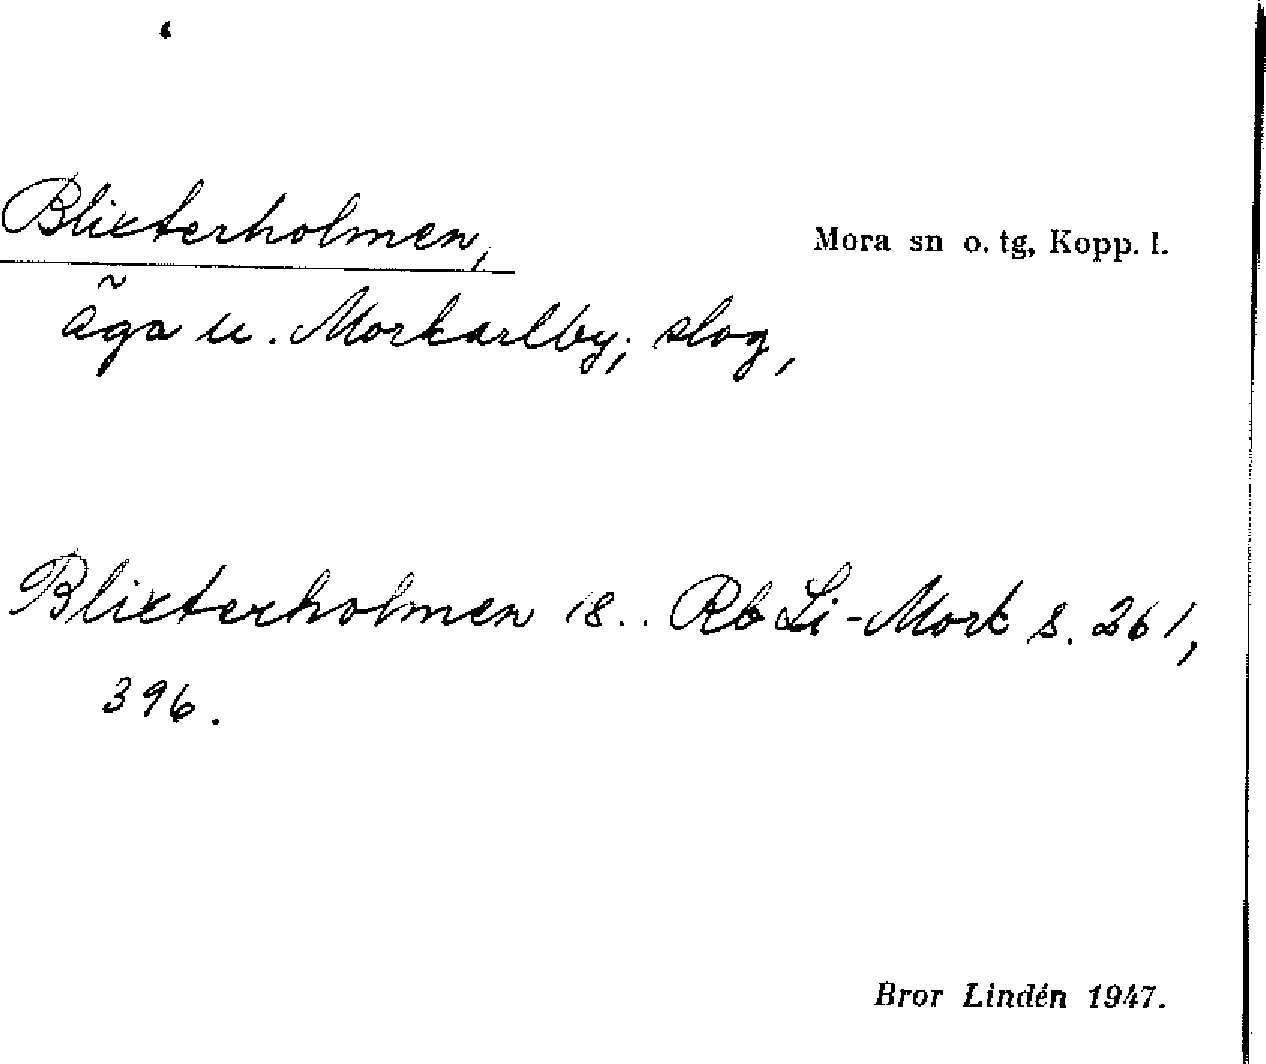 Blixterholmen,
Mora sn o. tg, Kopp. l.
äga u. Morkarlby; slog,
Blixterholmen 18.. Rb Li-Mork s. 261,
396.
Bror Lindén 1947.